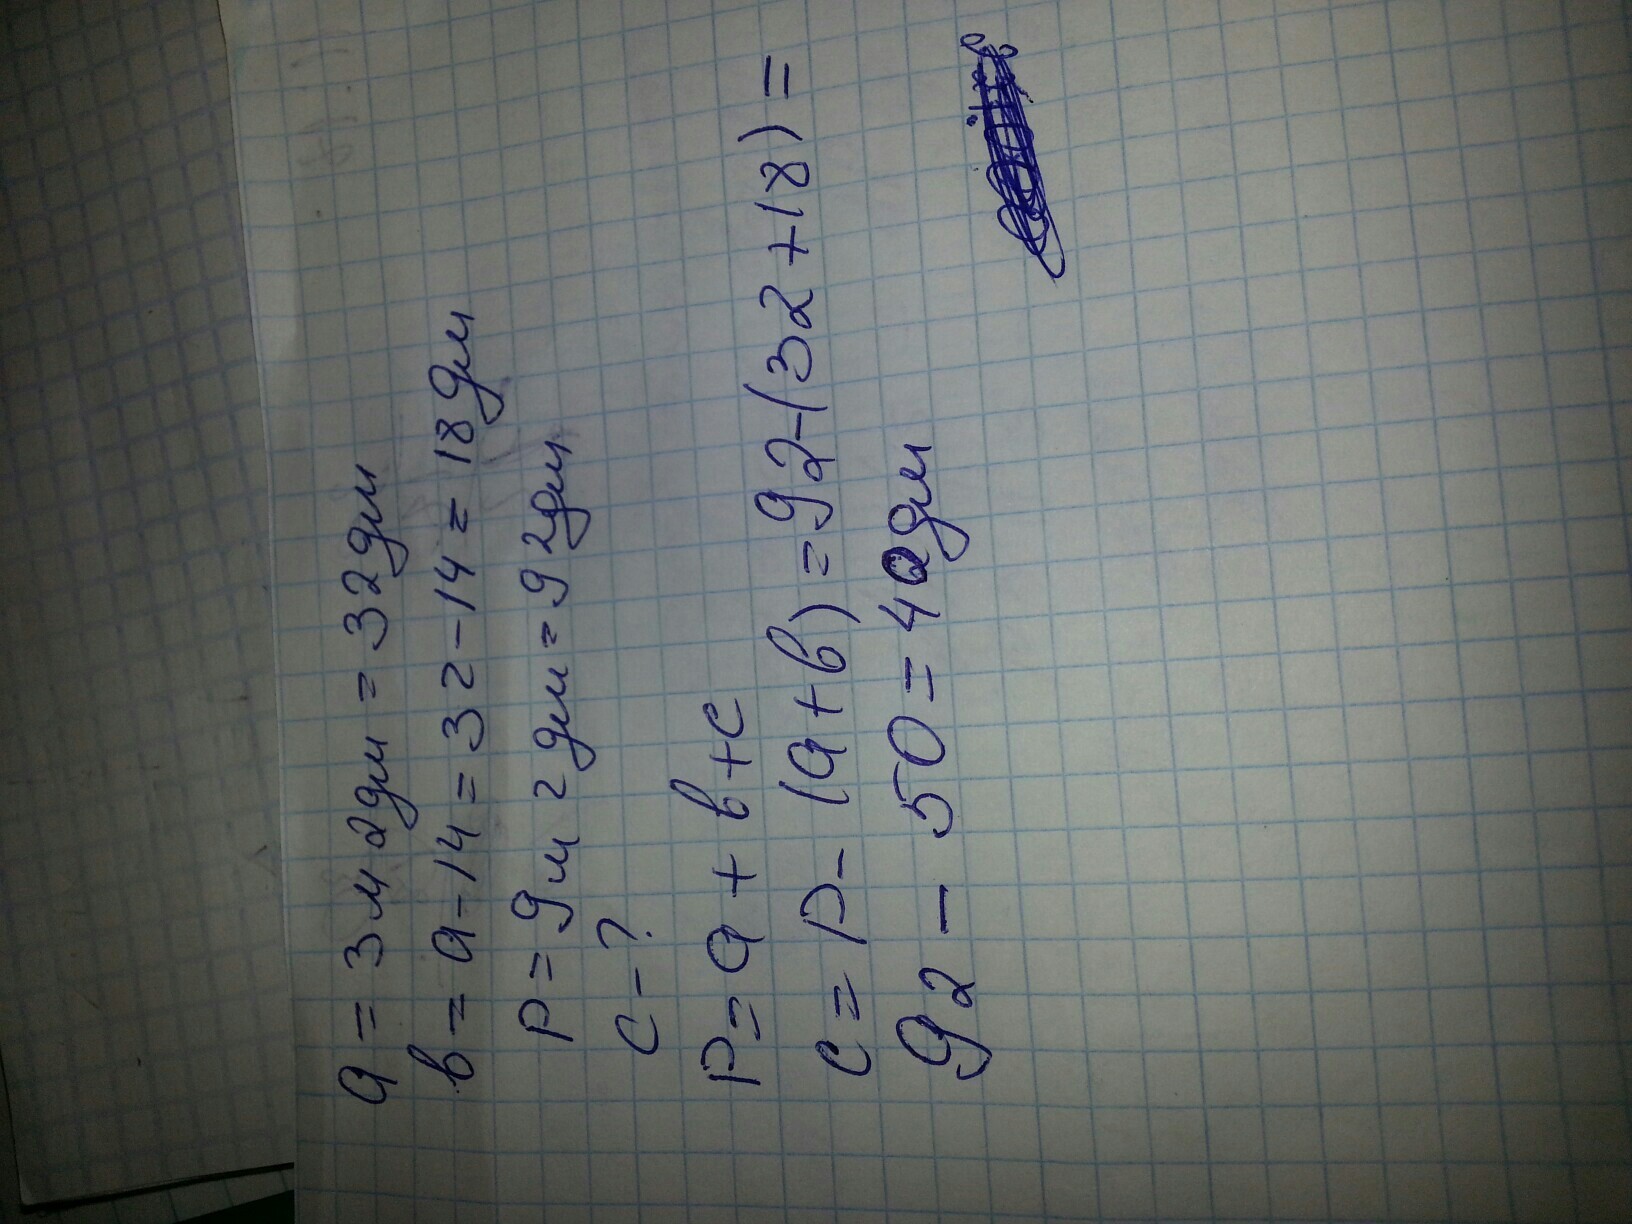 a = 3м 2дм = 32дм
в = a - 14 = 32 - 14 = 18дм
P = 9м 2дм = 92дм
c - ?
P = a + в + c
c = P - (a + в) = 92 - (32 + 18) =
92 - 50 = 42дм